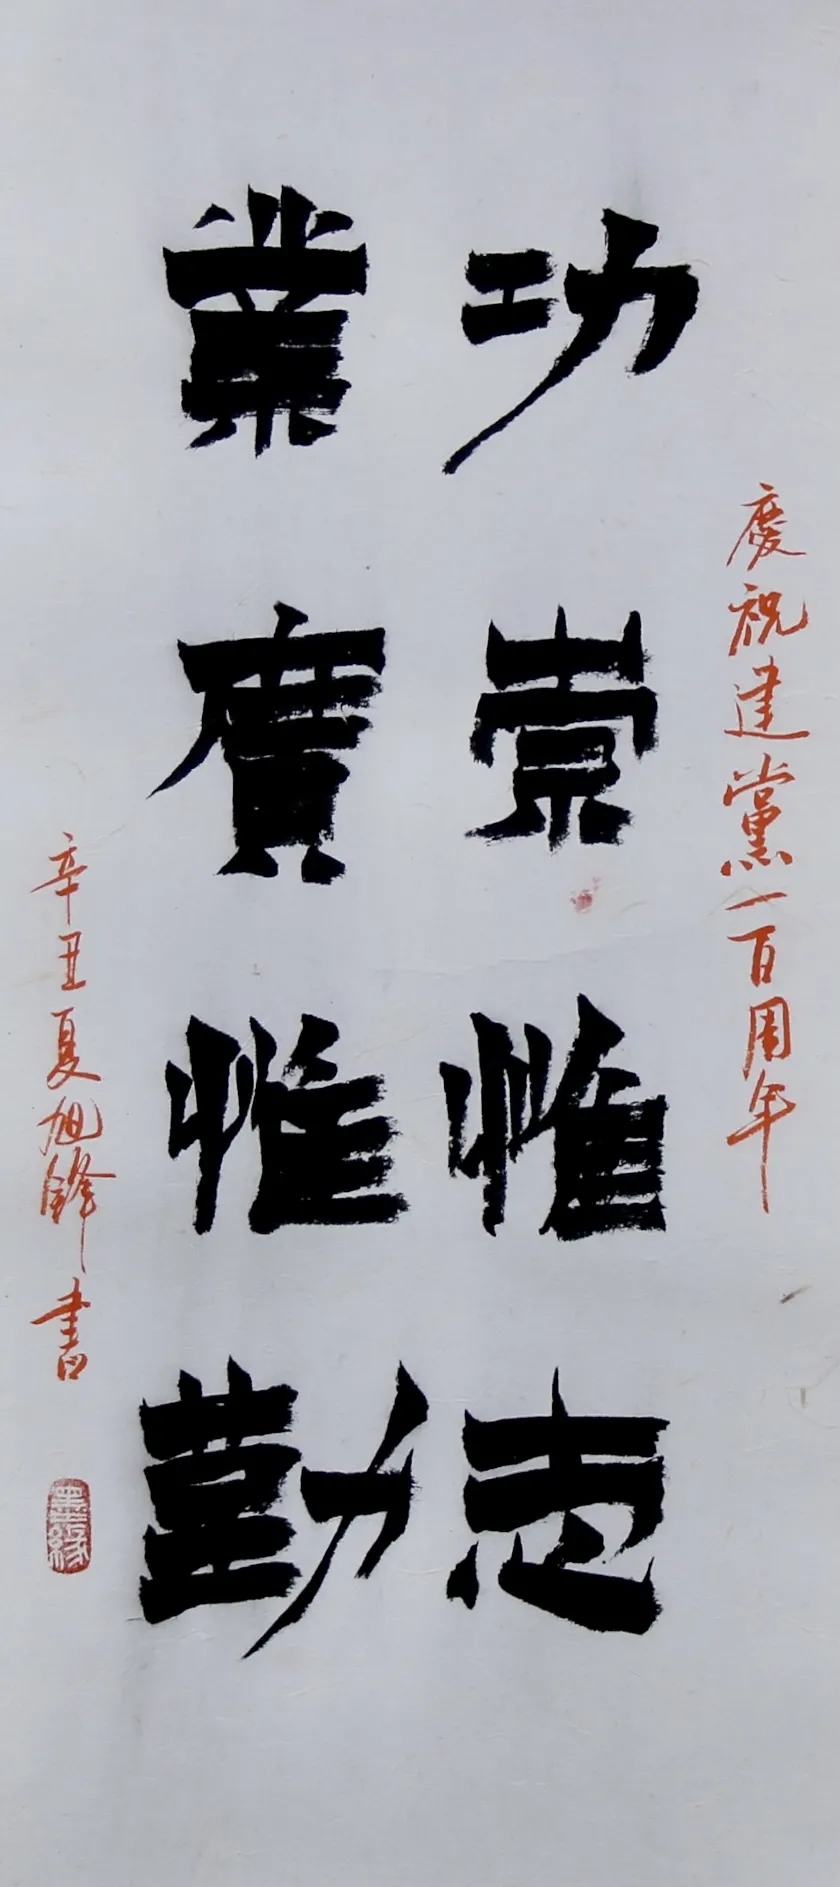 慶祝建黨一百周年
功崇惟志
業廣惟勤
辛丑夏旭鋒書
墨緣